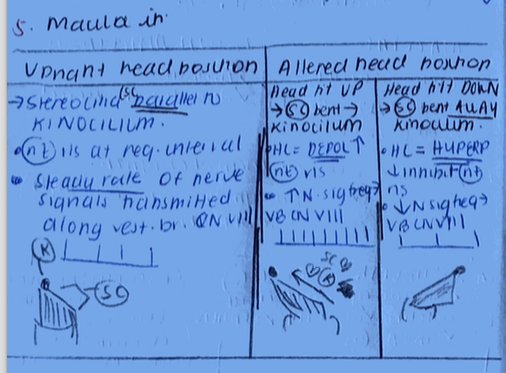 5. Macula in
Upright head position
Altered head position
→ Stereocilia (SC) parallel to
KINOCILIUM.
• (nt) rls at reg. interval
• Steady rate of nerve
signals transmitted
along vest. br. CN VIII
(K)
(SC)
Head tilt UP
→ (SC) bent →
Kinocilium
• HC = DEPOL ↑
(nt) rls
• ↑ N. sig freq →
VB CN VIII
SC
(K)
Head tilt DOWN
→ (SC) bent AWAY
Kinocilium.
• HC = HYPERP
↓ inhibit (nt)
• ↓ N sig freq →
VB CN VIII